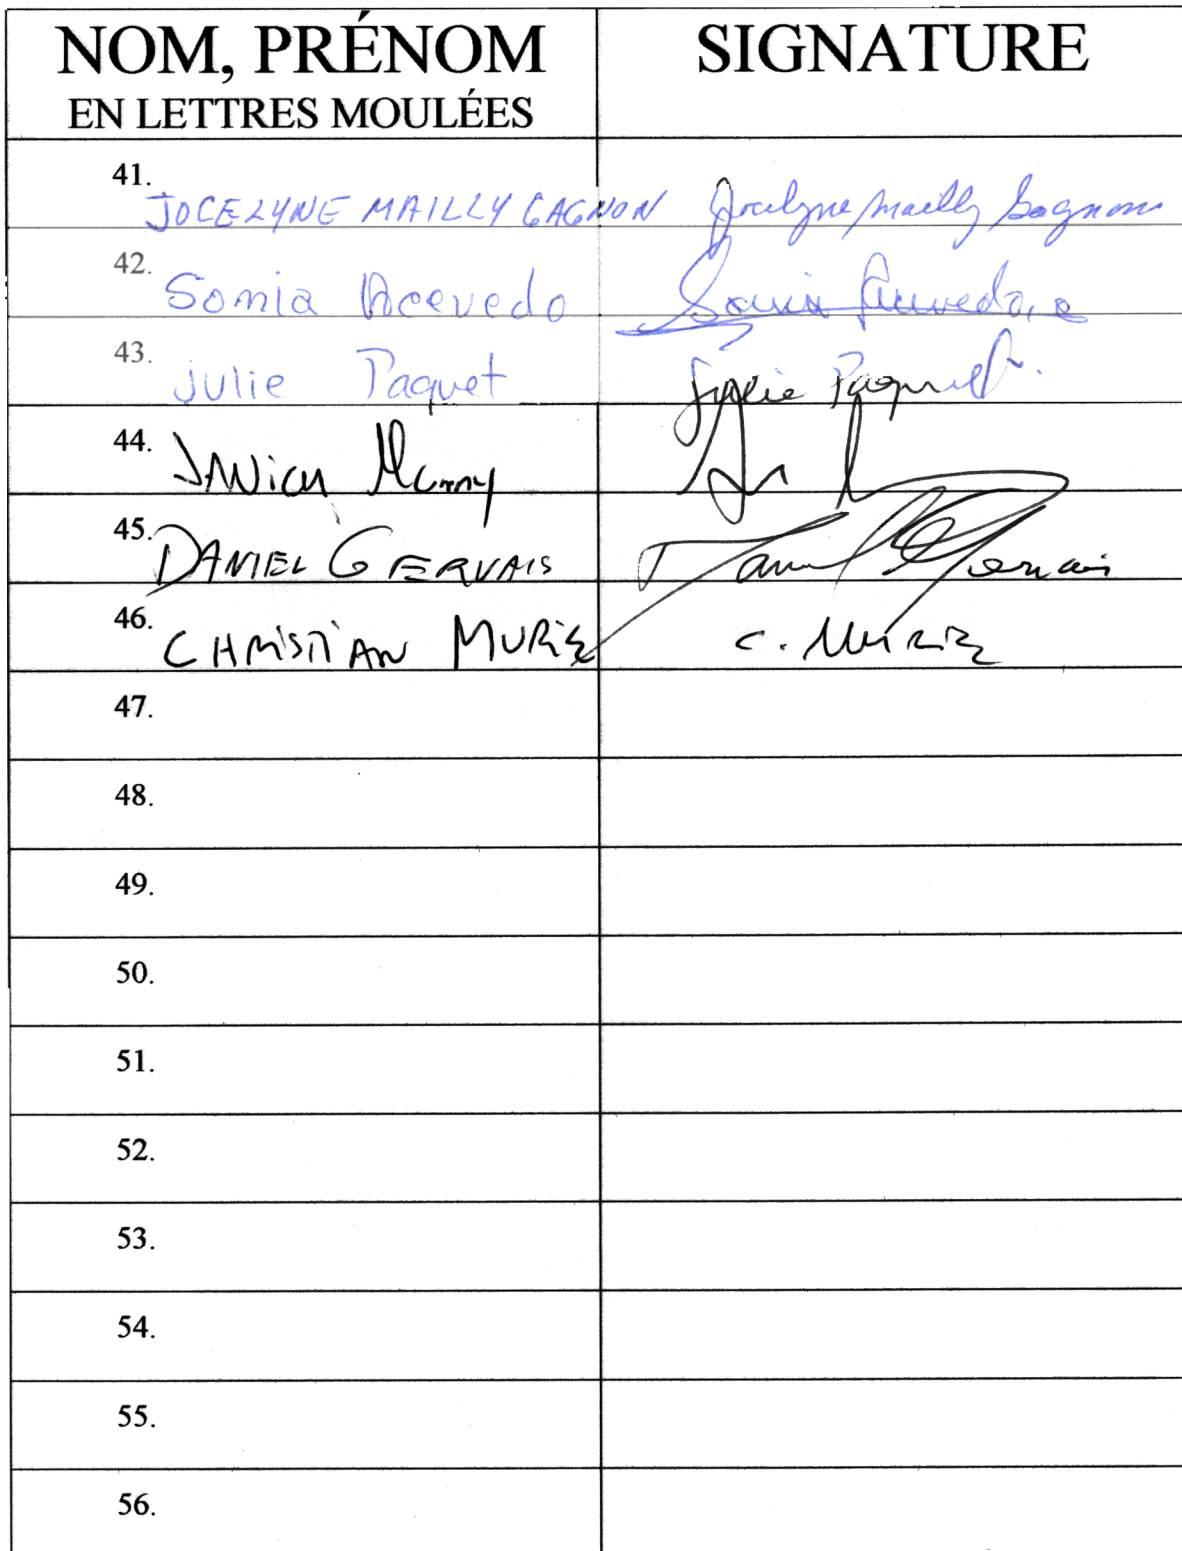 NOM, PRÉNOM SIGNATURE
EN LETTRES MOULÉES
41. JOCELYNE MAILLY GAGNON Jocelyne Mailly Gagnon
42. Sonia Acevedo Sonia Acevedo
43. Julie Paquet Julie Paquet
44.
45. DANIEL GERVAIS Daniel Gervais
46. CHRISTIAN C.
47.
48.
49.
50.
51.
52.
53.
54.
55.
56.